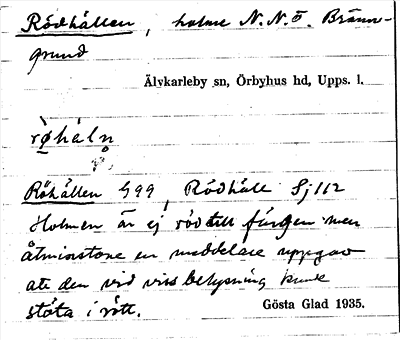 Rödhällen, holme N.N.Ö. Bränn-
grund
Älvkarleby sn, Örbyhus hd, Upps. l.
røhàln
Röhällen G99, Rödhäll Sj 112
Holmen är ej röd till färgen men
åtminstone en meddelare uppgav
att den vid viss belysning kunde
stöta i rött.
Gösta Glad 1935.